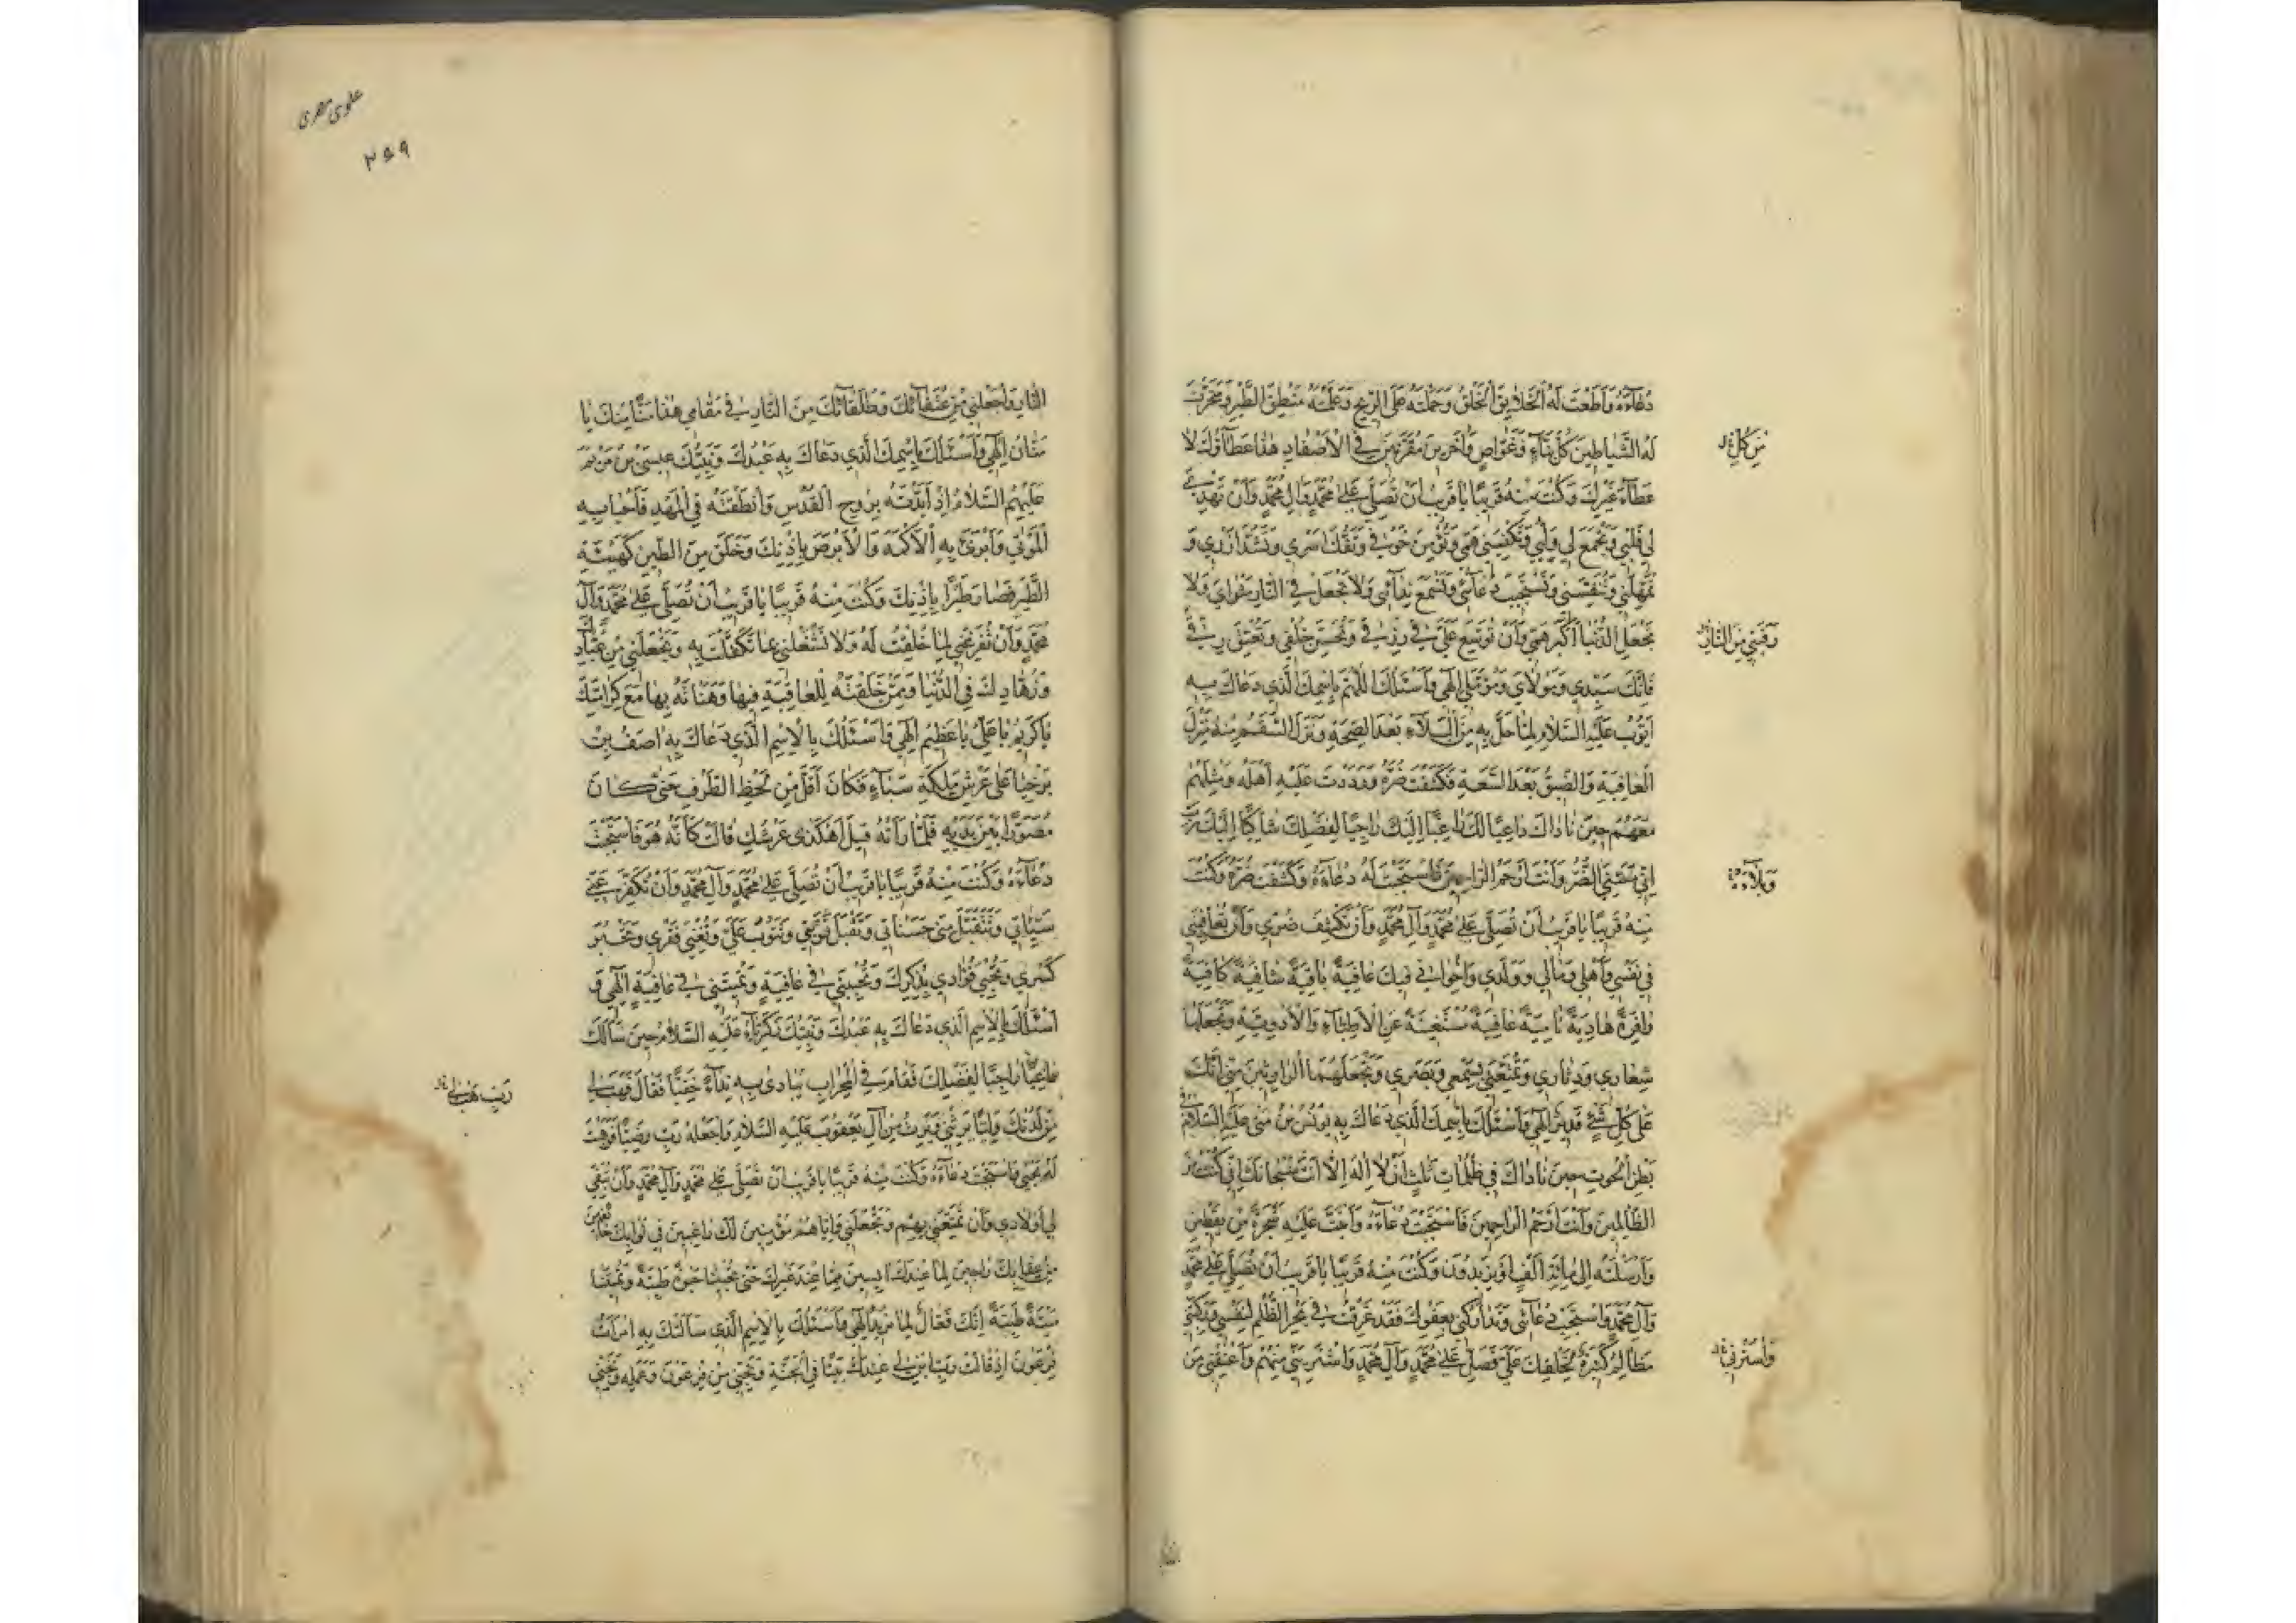 دُعَاءَهُ وَاَطَعْتَ لَهُ الْخَلْقَ وَحَمَلْتَهُ عَلَى الرّيحِ وَعَلَّمْتَهُ مَنْطِقَ الطَّيْرِ وَسَخَّرْتَ
لَهُ الشَّيَاطينَ كُلَّ بَنَّاءٍ وَغَوَّاصٍ وَاٰخَرينَ مُقَرَّنينَ فِي الْاَصْفَادِ هٰذَا عَطَاؤُكَ لَا
مِنْ كُلّ
عَطَاءُ غَيْرِكَ وَكُنْتَ مِنْهُ قَريبًا يَا قَريبُ اَنْ تُصَلِّيَ عَلٰى مُحَمَّدٍ وَاٰلِ مُحَمَّدٍ وَاَنْ تَهْدِيَ
لي قَلْبي وَتَجْمَعَ لي وَتَكْفِيَني هَمّي وَتُؤْمِنَ خَوْفي وَتَفُكَّ اَسْري وَتَشُدَّ اَزْري وَ
تُمْهِلَني وَتُنَفِّسَني وَتَسْتَجيبَ دُعَائي وَتَسْمَعَ نِدَائي وَلَا تَجْعَلَ فِي النَّارِ مَاْوَايَ وَلَا
تَجْعَلِ الدُّنْيَا اَكْبَرَ هَمّي وَاَنْ تُوَسِّعَ عَلَيَّ في رِزْقي وَتُحَسِّنَ خُلْقي وَتُعْتِقَ
رَقَبَتي مِنَ النَّارِ
فَاِنَّكَ سَيِّدي وَمَوْلَايَ وَمُؤَمَّلي اِلٰهي وَاَسْئَلُكَ اللّٰهُمَّ بِاِسْمِكَ الَّذي دَعَاكَ بِهِ
اَيُّوبُ عَلَيْهِ السَّلَامُ لَمَّا حَلَّ بِهِ مِنَ الْبَلَاءِ بَعْدَ الصِّحَّةِ وَنَزَلَ السُّقْمُ مِنْهُ مَنْزِلَ
الْعَافِيَةِ وَالضّيقُ بَعْدَ السَّعَةِ فَكَشَفْتَ ضُرَّهُ وَرَدَدْتَ عَلَيْهِ اَهْلَهُ وَمِثْلَهُمْ
مَعَهُمْ حينَ نَادَاكَ دَاعِيًا لَكَ رَاغِبًا اِلَيْكَ رَاجِيًا لِفَضْلِكَ شَاكِيًا اِلَيْكَ رَبِّ
اِنّي مَسَّنِيَ الضُّرُّ وَاَنْتَ اَرْحَمُ الرَّاحِمينَ فَاسْتَجَبْتَ لَهُ دُعَاءَهُ وَكَشَفْتَ ضُرَّهُ وَكُنْتَ
وَبَلَاءَهُ
مِنْهُ قَريبًا يَا قَريبُ اَنْ تُصَلِّيَ عَلٰى مُحَمَّدٍ وَاٰلِ مُحَمَّدٍ وَاَنْ تَكْشِفَ ضُرّي وَاَنْ تُعَافِيَني
في نَفْسي وَاَهْلي وَمَالي وَوَلَدي وَاِخْوَاني فيكَ عَافِيَةً بَاقِيَةً شَافِيَةً كَافِيَةً
وَافِرَةً هَادِيَةً نَامِيَةً عَافِيَةً مُسْتَغْنِيَةً عَنِ الْاَطِبَّاءِ وَالْاَدْوِيَةِ وَتَجْعَلَهَا
شِعَاري وَدِثَاري وَتُمَتِّعَني بِسَمْعي وَبَصَري وَتَجْعَلَهُمَا الْوَارِثَيْنِ مِنّي اِنَّكَ
عَلٰى كُلِّ شَيْءٍ قَديرٌ اِلٰهي وَاَسْئَلُكَ بِاِسْمِكَ الَّذي دَعَاكَ بِهِ يُونُسُ بْنُ مَتّٰى عَلَيْهِ السَّلَامُ في
بَطْنِ الْحُوتِ حينَ نَادَاكَ في ظُلُمَاتٍ ثَلٰثٍ اَنْ لَا اِلٰهَ اِلَّا اَنْتَ سُبْحَانَكَ اِنّي كُنْتُ مِنَ
الظَّالِمينَ وَاَنْتَ اَرْحَمُ الرَّاحِمينَ فَاسْتَجَبْتَ دُعَاءَهُ وَاَنْبَتَّ عَلَيْهِ شَجَرَةً مِنْ يَقْطينٍ
وَاَرْسَلْتَهُ اِلٰى مِائَةِ اَلْفٍ اَوْ يَزيدُونَ وَكُنْتَ مِنْهُ قَريبًا يَا قَريبُ اَنْ تُصَلِّيَ عَلٰى مُحَمَّدٍ
وَاٰلِ مُحَمَّدٍ وَاسْتَجِبْ دُعَائي وَتَدَارَكْني بِعَفْوِكَ فَقَدْ غَرِقْتُ في بَحْرِ الظُّلْمِ لِنَفْسي وَرَكِبَتْني
مَظَالِمُ كَثيرَةٌ لِخَلْقِكَ عَلَيَّ فَصَلِّ عَلٰى مُحَمَّدٍ وَاٰلِ مُحَمَّدٍ وَاسْتُرْني مِنْهُمْ وَاَعْتِقْني مِنَ
وَاسْتُرْني
۲۶۹
النَّارِ وَاجْعَلْني مِنْ عُتَقَائِكَ وَطُلَقَائِكَ مِنَ النَّارِ في مَقَامي هٰذَا بِمَنِّكَ يَا
مَنَّانُ اِلٰهي وَاَسْئَلُكَ بِاِسْمِكَ الَّذي دَعَاكَ بِهِ عَبْدُكَ وَنَبِيُّكَ عيسَى بْنُ مَرْيَمَ
عَلَيْهِمُ السَّلَامُ اِذْ اَيَّدْتَهُ بِرُوحِ الْقُدُسِ وَاَنْطَقْتَهُ فِي الْمَهْدِ فَاَحْيَا بِهِ
الْمَوْتٰى وَاَبْرَئَ بِهِ الْاَكْمَهَ وَالْاَبْرَصَ بِاِذْنِكَ وَخَلَقَ مِنَ الطّينِ كَهَيْئَةِ
الطَّيْرِ فَصَارَ طَيْرًا بِاِذْنِكَ وَكُنْتَ مِنْهُ قَريبًا يَا قَريبُ اَنْ تُصَلِّيَ عَلٰى مُحَمَّدٍ وَاٰلِ
مُحَمَّدٍ وَاَنْ تُفَرِّغَني لِمَا خُلِقْتُ لَهُ وَلَا تَشْغَلَني بِمَا تَكَفَّلْتَ بِهِ وَتَجْعَلَني مِنْ عُبَّادِكَ
وَزُهَّادِكَ فِي الدُّنْيَا وَمِمَّنْ خَلَقْتَهُ لِلْعَافِيَةِ فيهَا وَهَنَّاْتَهُ بِهَا مَعَ كَرَامَتِكَ
يَا كَريمُ يَا عَلِيُّ يَا عَظيمُ اِلٰهي وَاَسْئَلُكَ بِالْاِسْمِ الَّذي دَعَاكَ بِهِ اٰصَفُ بْنُ
بَرْخِيَا عَلٰى عَرْشِ مَلِكَةِ سَبَاءٍ فَكَانَ اَقَلَّ مِنْ لَحْظِ الطَّرْفِ حَتّٰى كَانَ
مُصَوَّرًا بَيْنَ يَدَيْهِ فَلَمَّا رَاَتْهُ قيلَ اَهٰكَذٰى عَرْشُكِ قَالَتْ كَاَنَّهُ هُوَ فَاسْتَجَبْتَ
دُعَاءَهُ وَكُنْتَ مِنْهُ قَريبًا يَا قَريبُ اَنْ تُصَلِّيَ عَلٰى مُحَمَّدٍ وَاٰلِ مُحَمَّدٍ وَاَنْ تُكَفِّرَ عَنّي
سَيِّئَاتي وَتَتَقَبَّلَ مِنّي حَسَنَاتي وَتَقْبَلَ تَوْبَتي وَتَتُوبَ عَلَيَّ وَتُغْنِيَ فَقْري وَتَجْبُرَ
كَسْري وَتُحْيِيَ فُؤَادي بِذِكْرِكَ وَتُحْيِيَني في عَافِيَةٍ وَتُميتَني في عَافِيَةٍ اِلٰهي وَ
اَسْئَلُكَ بِالْاِسْمِ الَّذي دَعَاكَ بِهِ عَبْدُكَ وَنَبِيُّكَ زَكَرِيَّاءُ عَلَيْهِ السَّلَامُ حينَ سَاَلَكَ
دَاعِيًا رَاجِيًا لِفَضْلِكَ فَقَامَ فِي الْمِحْرَابِ يُنَادي بِهِ نِدَاءً خَفِيًّا فَقَالَ فَهَبْ لي
رَبِّ هَبْ لي
مِنْ لَدُنْكَ وَلِيًّا يَرِثُني وَيَرِثُ مِنْ اٰلِ يَعْقُوبَ عَلَيْهِ السَّلَامُ وَاجْعَلْهُ رَبِّ رَضِيًّا فَوَهَبْتَ
لَهُ يَحْيٰى فَاسْتَجَبْتَ دُعَاءَهُ وَكُنْتَ مِنْهُ قَريبًا يَا قَريبُ اَنْ تُصَلِّيَ عَلٰى مُحَمَّدٍ وَاٰلِ مُحَمَّدٍ وَاَنْ تُبْقِيَ
لي اَوْلَادي وَاَنْ تُمَتِّعَني بِهِمْ وَتَجْعَلَني وَاِيَّاهُمْ مُؤْمِنينَ لَكَ رَاغِبينَ في ثَوَابِكَ خَائِفينَ
مِنْ عِقَابِكَ رَاجينَ لِمَا عِنْدَكَ اٰيِسينَ مِمَّا عِنْدَ غَيْرِكَ حَتّٰى تُحْيِيَنَا حَيٰوةً طَيِّبَةً وَتُميتَنَا
مَيْتَةً طَيِّبَةً اِنَّكَ فَعَّالٌ لِمَا تُريدُ اِلٰهي وَاَسْئَلُكَ بِالْاِسْمِ الَّذي سَاَلَتْكَ بِهِ امْرَاَةُ
فِرْعَوْنَ اِذْ قَالَتْ رَبِّ ابْنِ لي عِنْدَكَ بَيْتًا فِي الْجَنَّةِ وَنَجِّني مِنْ فِرْعَوْنَ وَعَمَلِهِ وَنَجِّني